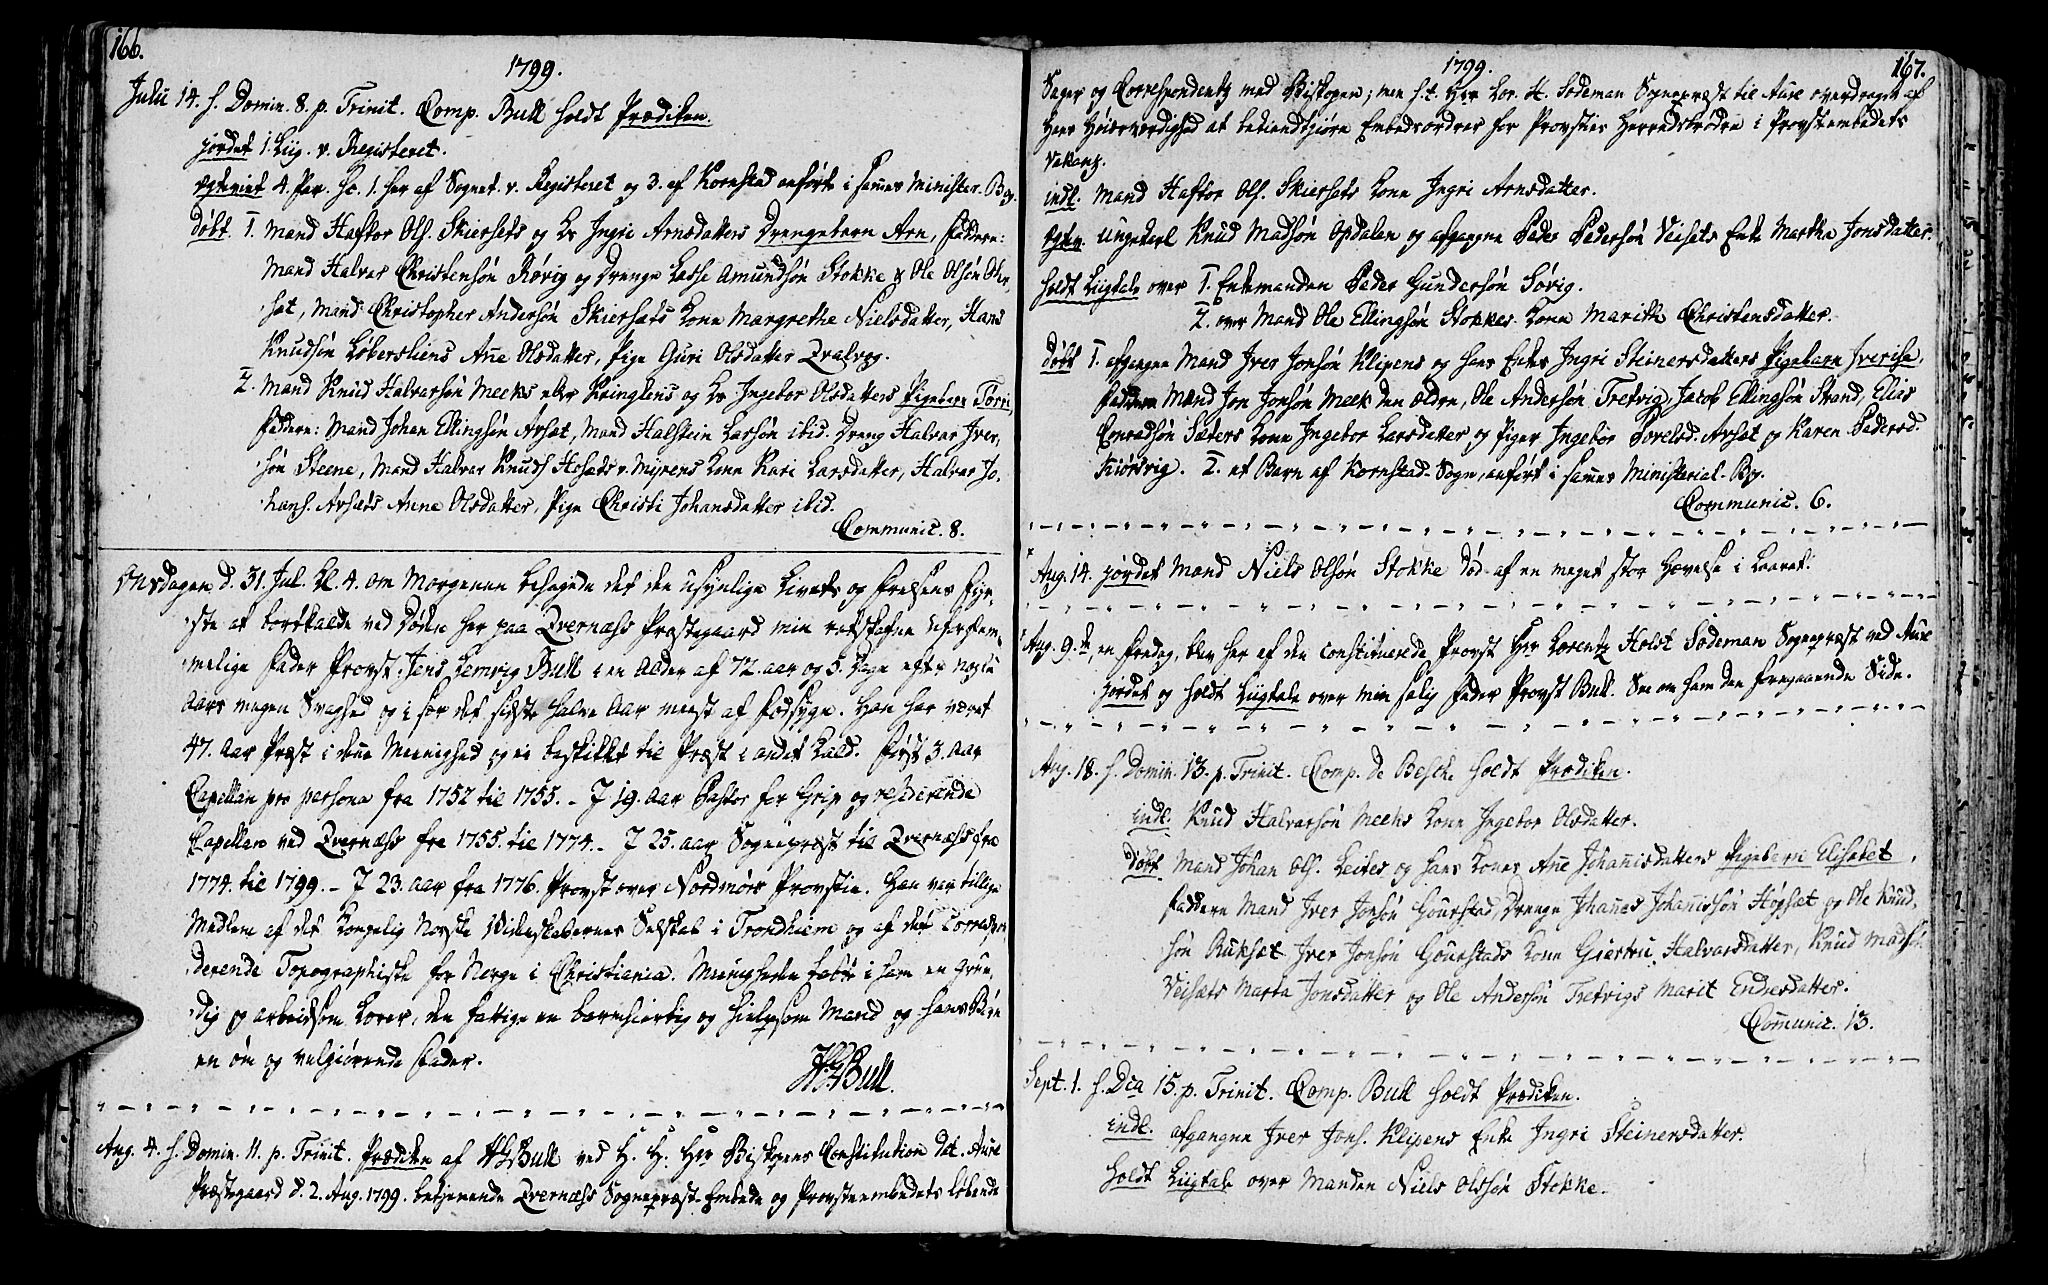 166.
1799.
Julii 14. f. Domin. 8. p. Trinit. Comp. Bull holdt Prædiken.
jordet 1. Liig. v. Registeret.
egteviet 4. Par. Sc. 1. her af Sognet v. Registeret og 3. af Kornstad anført i samme Minister. Bog.
døbt. 1. Mand Haftor Ols. Skiersets og Ko Ingri Arnsdatters Drengebarn Arn, faddere:
Mand Halvar Christensøn Rørvig og Drenge Lasse Amundsøn Stokke & Ole Olsøn
set, Mand Christopher Andersøn Skiersets Kone Margrethe Nielsdatter, Hans
Knudsøn Løbersliens Ane Olsdatter, Pige Guri Olsdatter Qvalvog.
2. Mand Knud Halvarsøn Meeks eler Kringlens og Ko Ingebor Olsdatters Pigebarn Torri,
faddere: Mand Johan Ellingsøn Arset, Mand Halstein Larsøn ibid. Dreng Halvar Iver,
søn Steene, Mand Halvar Knuds Hosets v. Myrens Kone Kari Larsdatter, Halvar Jo,
hans. Arsets Anne Olsdatter, Pige Christi Johansdatter ibid.
Communic. 8.
Onsdagen d. 31. Jul. Kl. 4. om Morgenen behagede det den usynlige Livets og Frelsens Fyr,
ste at bortkalde ved Døden her paa Qvernæss Præstegaard min retskafne uforglem,
melige Fader Provst Jens Lemvig Bull i en Alder af 72. aar og 5. Dage efter nogle
Aars megen Svaghed og i sær det sidste halve Aar meest af Fodsyge. Han har været
47. Aar Præst i denne Menighed og ei beskikket til Præst i andet Kald. Først 3. Aar
Capellan pro persona fra 1752 til 1755. - I 19. Aar Pastor for Grip og residerende
Capellan ved Qvernæss fra 1755. til 1774. - I 25. aar Sognepræst til Qvernæss fra
1774. til 1799. - I 23. aar fra 1776. Provst over Nordmørs Provstie. Han var tillige
Medlem af det Kongelig Norske Videnskabernes Selskab i Trondhiem og af det Correspon,
derende Topographiske for Norge i Christiania. Menigheden tabte i ham en grun,
dig og arbeidsom Lærer, de fattige en barmhiertig og hielpsom Mand og hans Børn
en øm og velgiørende Fader.
Bull.
Aug. 4. f. Domin. 11. p. Trinit. Prædiken af Bull ved H. H. Hr Biskopens Constitution dat. Aure
Præstegaard d. 2. Aug. 1799. betjenende Qvernæss Sognepræst Embede og Provsteembedets løbende
167.
1799.
Sager og Correspondentz med Biskopen; men s. t. Hr Lor. H. Sødeman Sognepræst til Aure overdraget af
Hans Høiærværdighed at bekiendtgjøre Embedsordrer for Provstiets Herredsbrødre i Provstembedets
Vakantz.
indl. Mand Haftor Ols. Skiersets Kone Ingri Arnsdatter.
egtev. Ungkarl Knud Madsøn Opdalen og afgangne Peder Pedersøn Veisets Enke Martha Jonsdatter.
holdt Liigtale over 1. Enkemanden Peder Gundersøn Sørvig.
2. over Mand Ole Ellingsøn Stokkes Kone Marith Christensdatter.
døbt 1. afgangne Mand Iver Jonsøn Klipens og hans Enkes Ingri Steinersdatters Pigebarn Iverise,
faddere Mand Jon Jonsøn Meek den ældre, Ole Andersøn Tretvig, Jacob Ellingsøn Strand, Elias
Conradsøn Sæters Kone Ingebor Larsdatter og Piger Ingebor Povelsd. Arset og Karen Pedersd.
Kiørsvig. 2. et Barn af Kornstad-Sogn, anført i sammes Ministerial-Bog.
Communic. 6.
Aug. 14. jordet Mand Niels Olsøn Stokke død af en meget stor Hævelse i Laaret.
Aug. 9. de, en Fredag, blev her af den constituerede Provst Hr Lorentz Holst Sødeman Sognepræst ved Aure
jordet og holdt Liigtale over min salig Fader Provst Bull. See om ham den foregaaende Side.
Aug. 18. f. Domin. 13. p. Trinit. Comp. de Besche holdt Prædiken.
indl. Knud Halvarsøn Meeks Kone Ingebor Olsdatter.
døbt Mand Johan Ols. Leites og hans Kones Ane Johannisdatters Pigebarn Elisabet,
faddere Mand Iver Jonsøn Gourstad, Drenge Johannes Johannissøn Høgset og Ole Knud,
søn Rukset Iver Jonsøn Gourstads Kone Giertru Halvarsdatter, Knud Madsøn
Veisets Marta Jonsdatter og Ole Andersøn Tretvigs Marit Endresdatter.
Communic. 13.
Sept. 1. f. Dca 15. p. Trinit. Comp. Bull holdt Prædiken.
indl. afgangne Iver Jons. Klipens Enke Ingri Steinersdatter.
holdt Liigtale over Manden Niels Olssøn Stokke.